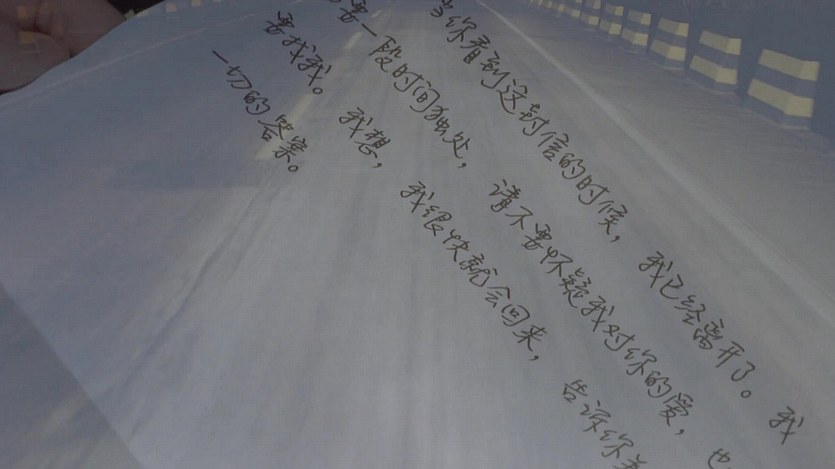 当你看到这封信的时候，我已经离开了。我
要一段时间独处，请不要怀疑我对你的爱，也
要找我。我想，我很快就会回来，告诉你
一切的答案。